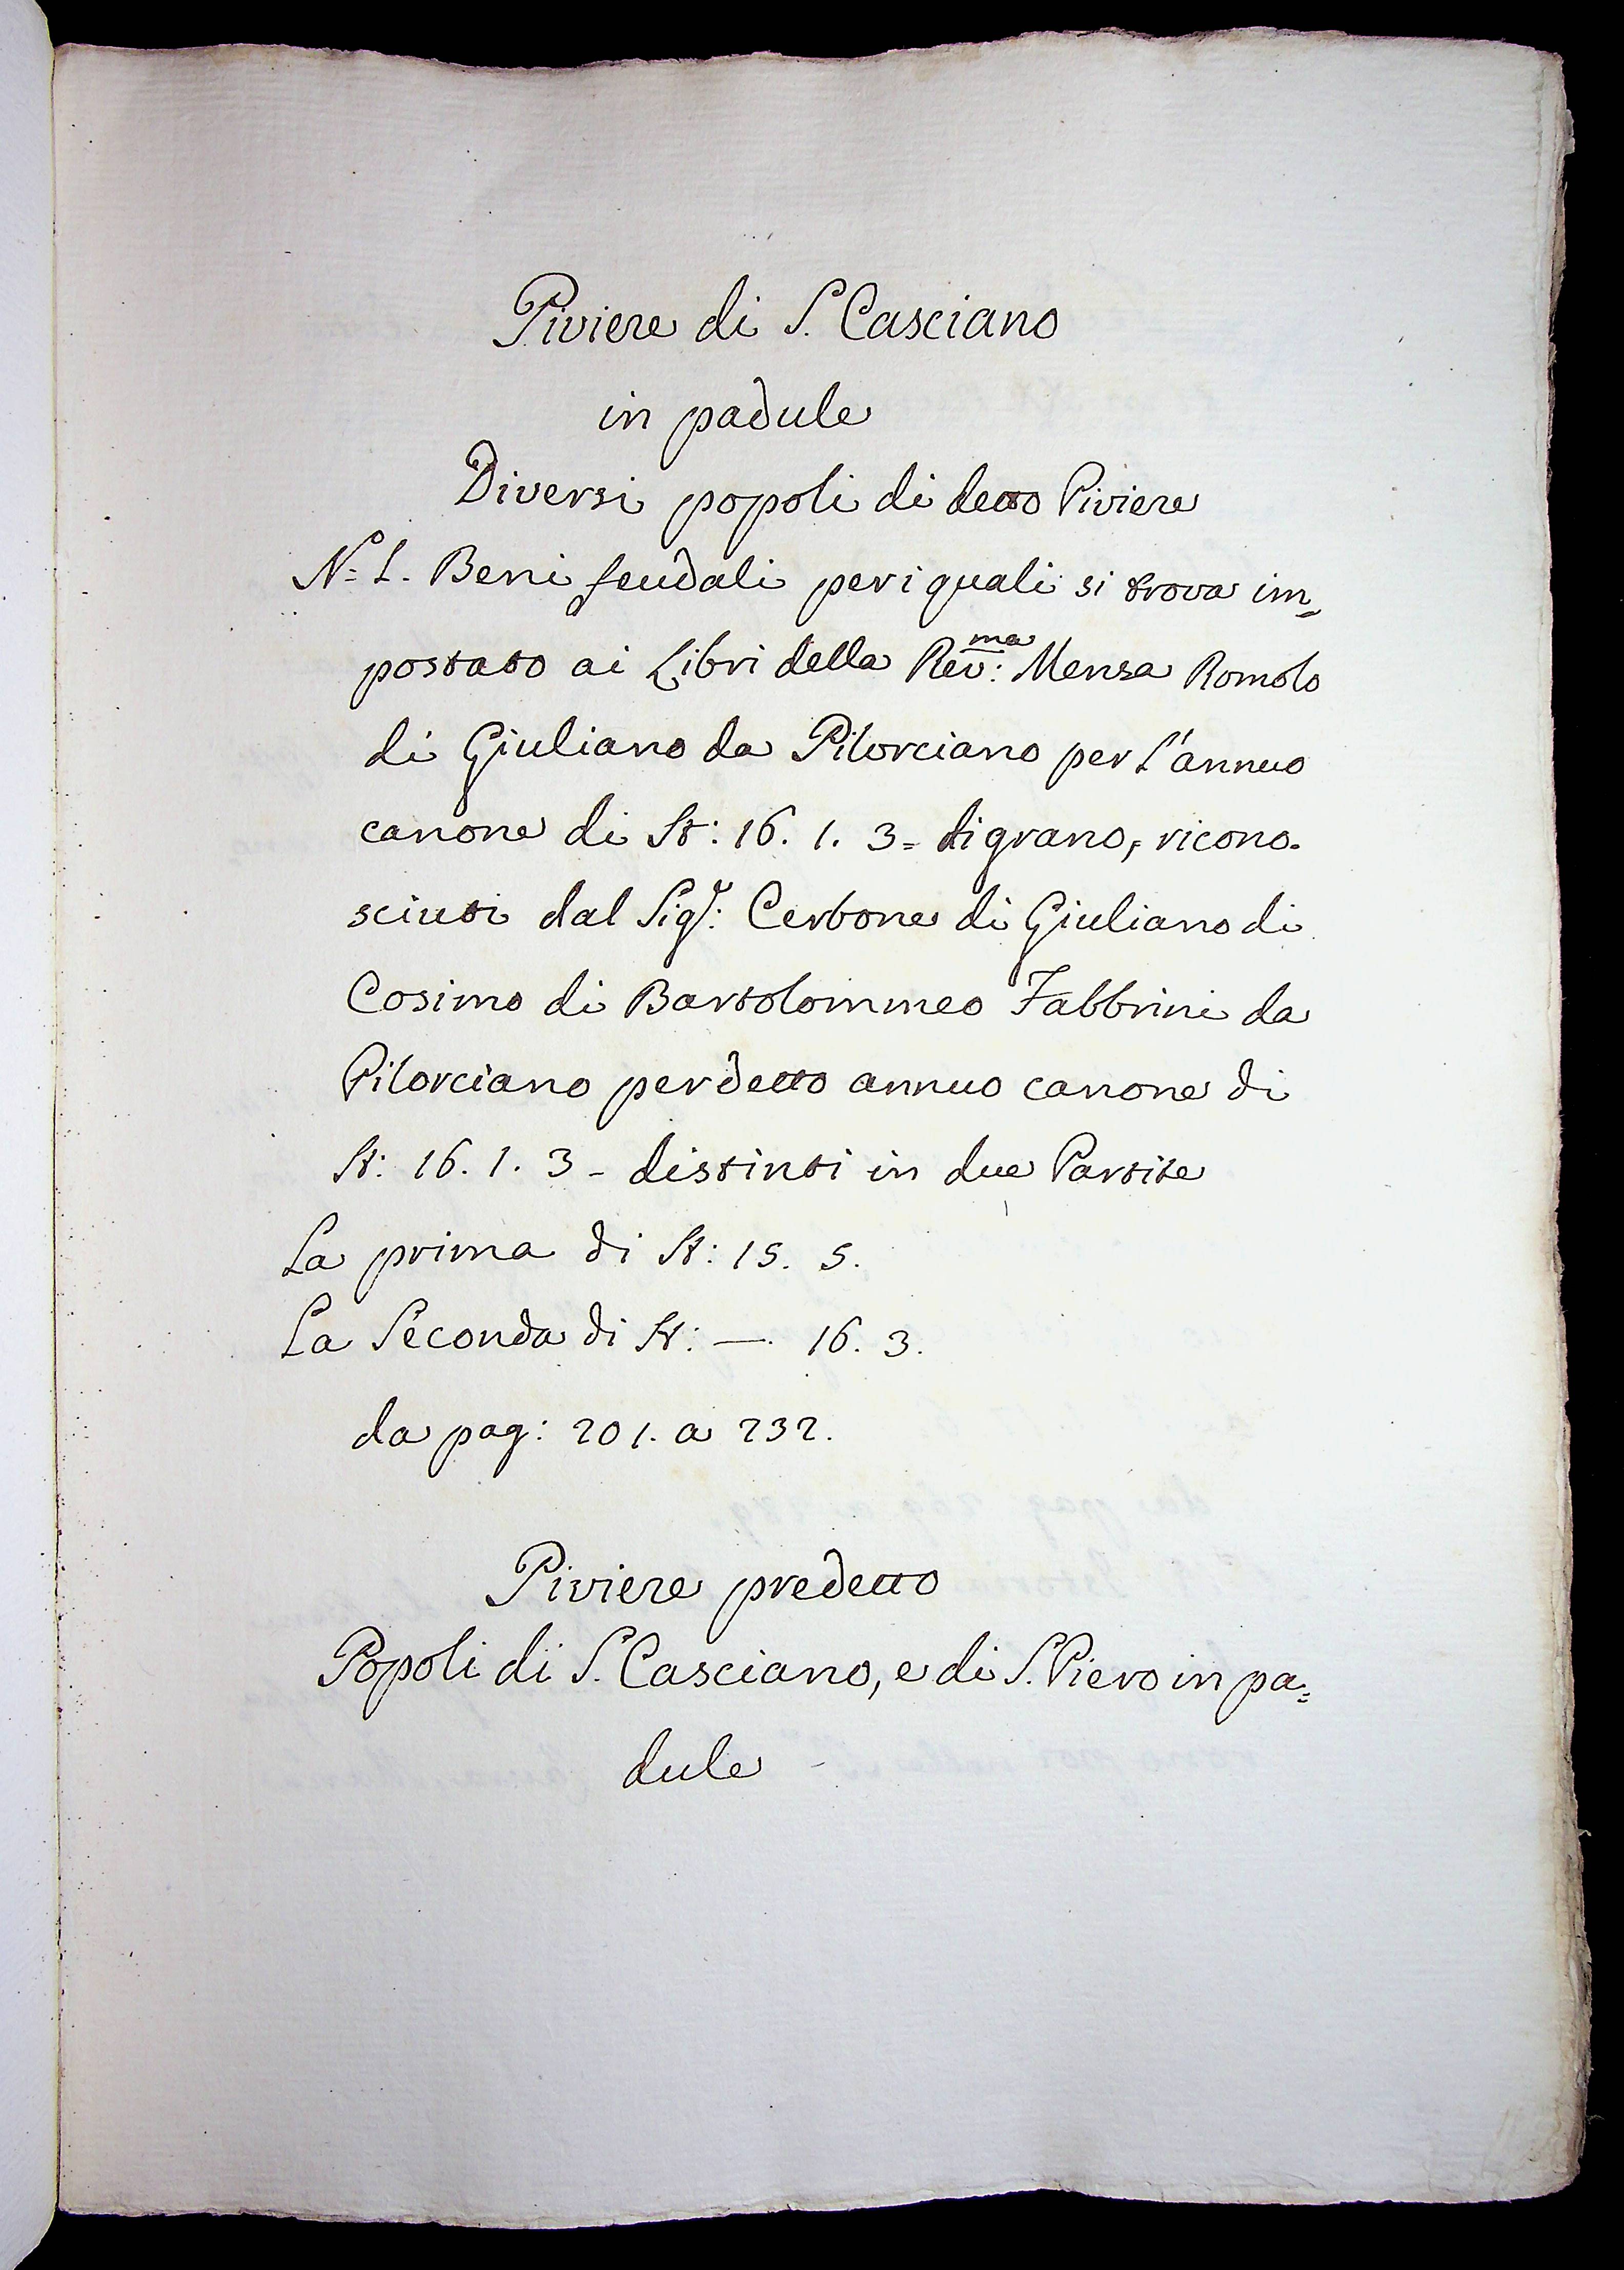 Piviere di S. Casciano
in padule
Diversi popoli di detto Piviere
N= L. Beni feudali per i quali si trova im=
postato ai Libri della Rev:ma Mensa Romolo
di Giuliano da Pilorciano per l'annuo
canone di St: 16. 1. 3= di grano, ricono=
sciuti dal Sigr: Cerbone di Giuliano di
Cosimo di Bartolommeo Fabbrini da
Pilorciano per detto annuo canone di
St: 16. 1. 3 - distinti in due Partite
La prima di St: 15. 5.
La Seconda di St: —. 16. 3.
da pag: 201. a 232.
Piviere predetto
Popoli di S. Casciano, e di S. Piero in pa=
dule